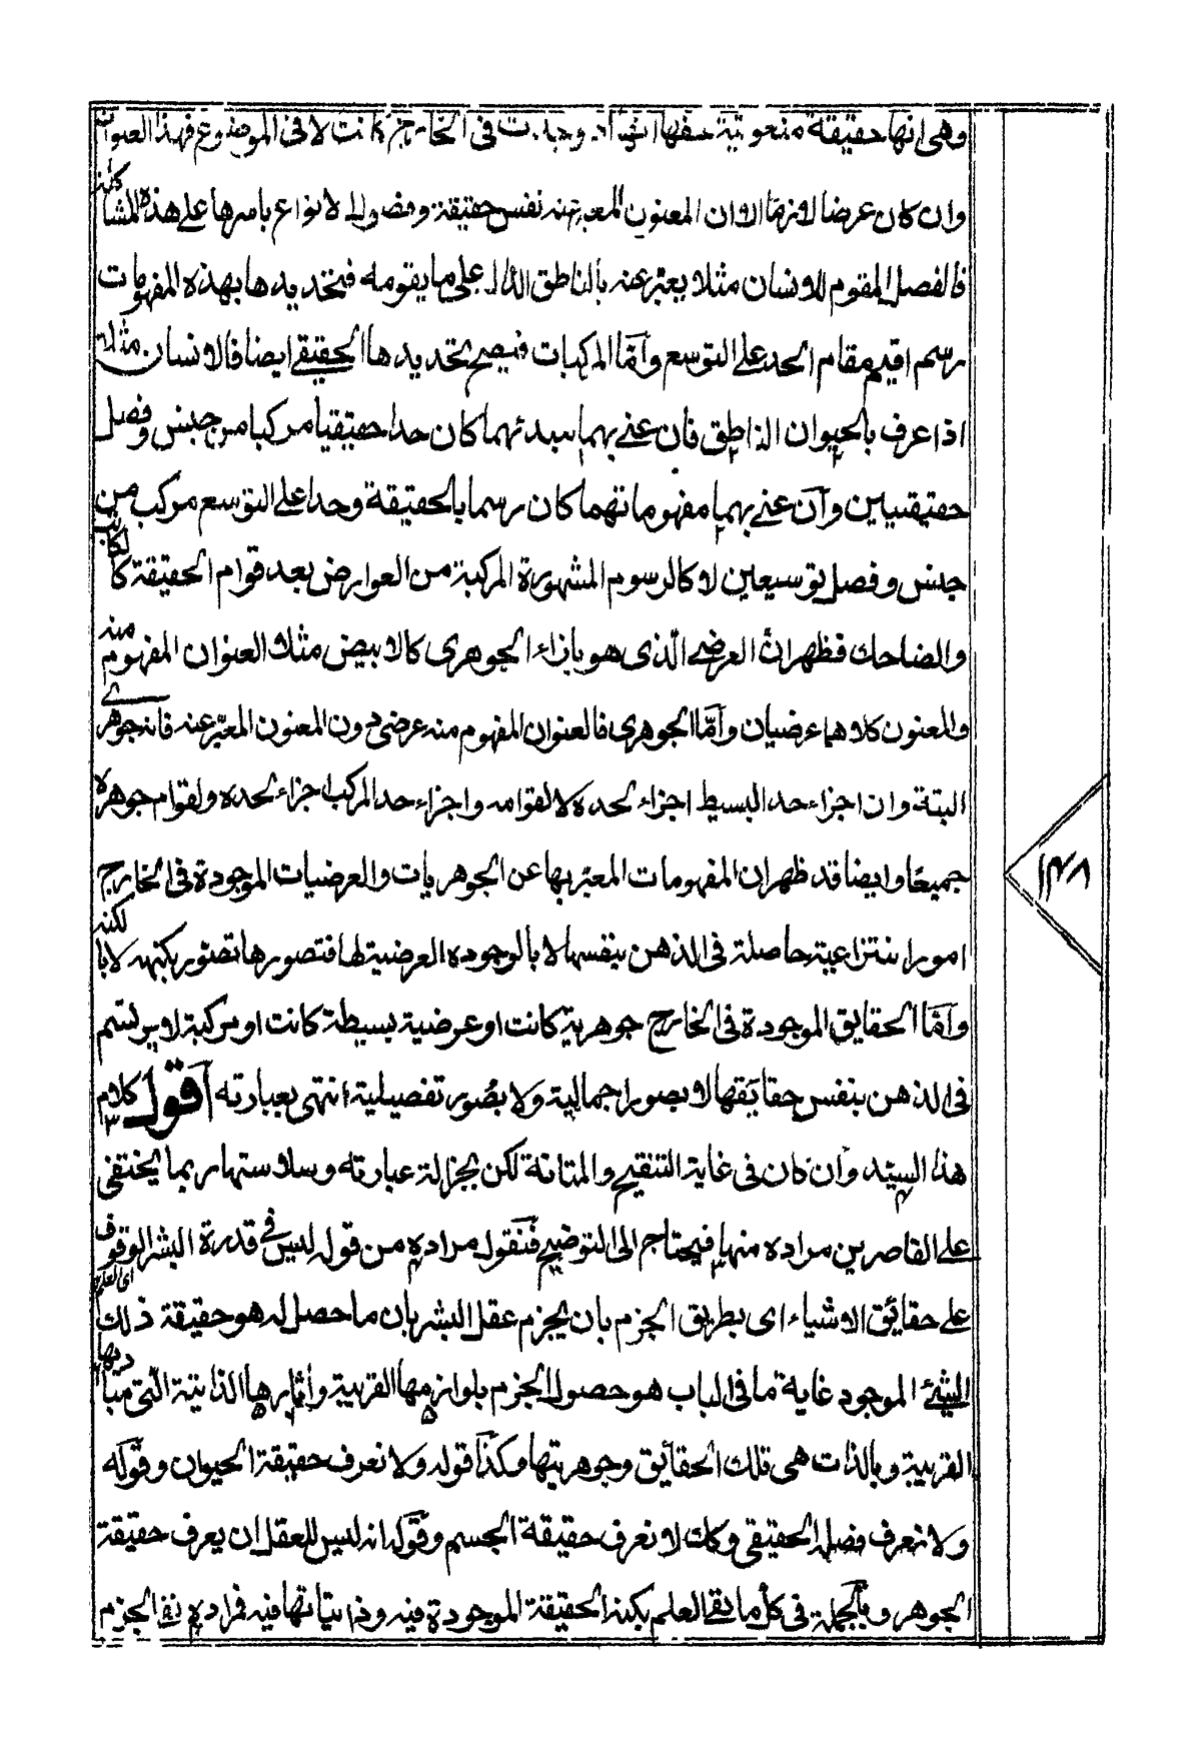 وهى انها حقيقة منعوتية حقها انها اذا وجدت فى الخارج كانت لا فى الموضوع فهذا العنوان
وان كان عرضا لازما الا ان المعنون المعبر عنه نفس حقيقة وفصول الانواع باسرها على هذه المشاكلة
فالفصل المقوم للانسان مثلا يعبر عنه بالناطق الدال على ما يقومه فتحديدها بهذه المفهومات
رسم اقيم مقام الحد على التوسع وأمّا المركبات فيصح تحديدها الحقيقى ايضا فالانسان مثلا
اذا عرف بالحيوان الناطق فان عنى بهما مبدئهما كان حدا حقيقيا مركبا من جنس وفصل
حقيقيين وآن عنى بهما مفهوماتهما كان رسما بالحقيقة وحدا على التوسع مركب من
جنس وفصل توسيعين لا كالرسوم المشهورة المركبة من العوارض بعد قوام الحقيقة كالكاتب
والضاحك فظهر انّ العرضى الّذى هو بازاء الجوهرى كالابيض مثلا العنوان المفهوم منه
والمعنون كلاهما عرضيان وأمّا الجوهرى فالعنوان المفهوم منه عرضى دون المعنون المعبّر عنه فانه جوهرى
البتة وان اجزاء حد البسيط اجزاء لحده لا لقوامه واجزاء حد المركب اجزاء لحده ولقوام جوهره
جميعًا وايضا قد ظهر ان المفهومات المعبّر بها عن الجوهريات والعرضيات الموجودة فى الخارج
امور انتزاعية حاصلة فى الذهن بنفسها لا بالوجوده العرضية لها فتصورها تصوّر بكنهه لا بالكنه
وأمّا الحقايق الموجودة فى الخارج جوهرية كانت او عرضية بسيطة كانت او مركبة لا يرتسم
فى الذهن بنفس حقايقها لا بصور اجمالية ولا بصُور تفصيلية انتهى بعبارته اقول كلام
هذا السيّد وأن كان فى غاية التنقيح والمتانة لكن بجزالة عبارته وسلاستها ربما يختفى
على القاصرين مراده منها فيحتاج الى التوضيح فنقول مراده من قوله ليس فى قدرة البشر الوقوف
على حقائق الاشياء اى بطريق الجزم بان يجزم عقل البشر بان ما حصل له هو حقيقة ذلك اى العلم
الشئ الموجود غاية ما فى الباب هو حصول الجزم بلوازمها القريبة وآثارها الذاتية التى مبادريها
القريبة وبالذات هى تلك الحقائق وجوهريتها وكذا قوله ولا نعرف حقيقة الحيوان وقوله
ولا نعرف فصله الحقيقى وكك لا نعرف حقيقة الجسم وقوله انه ليس للعقل ان يعرف حقيقة
الجوهر وبالجملة فى كل ما نفى العلم بكنه الحقيقة الموجودة فيه وذاتياتها فيه فمراده نفى الجزم
١٣٨